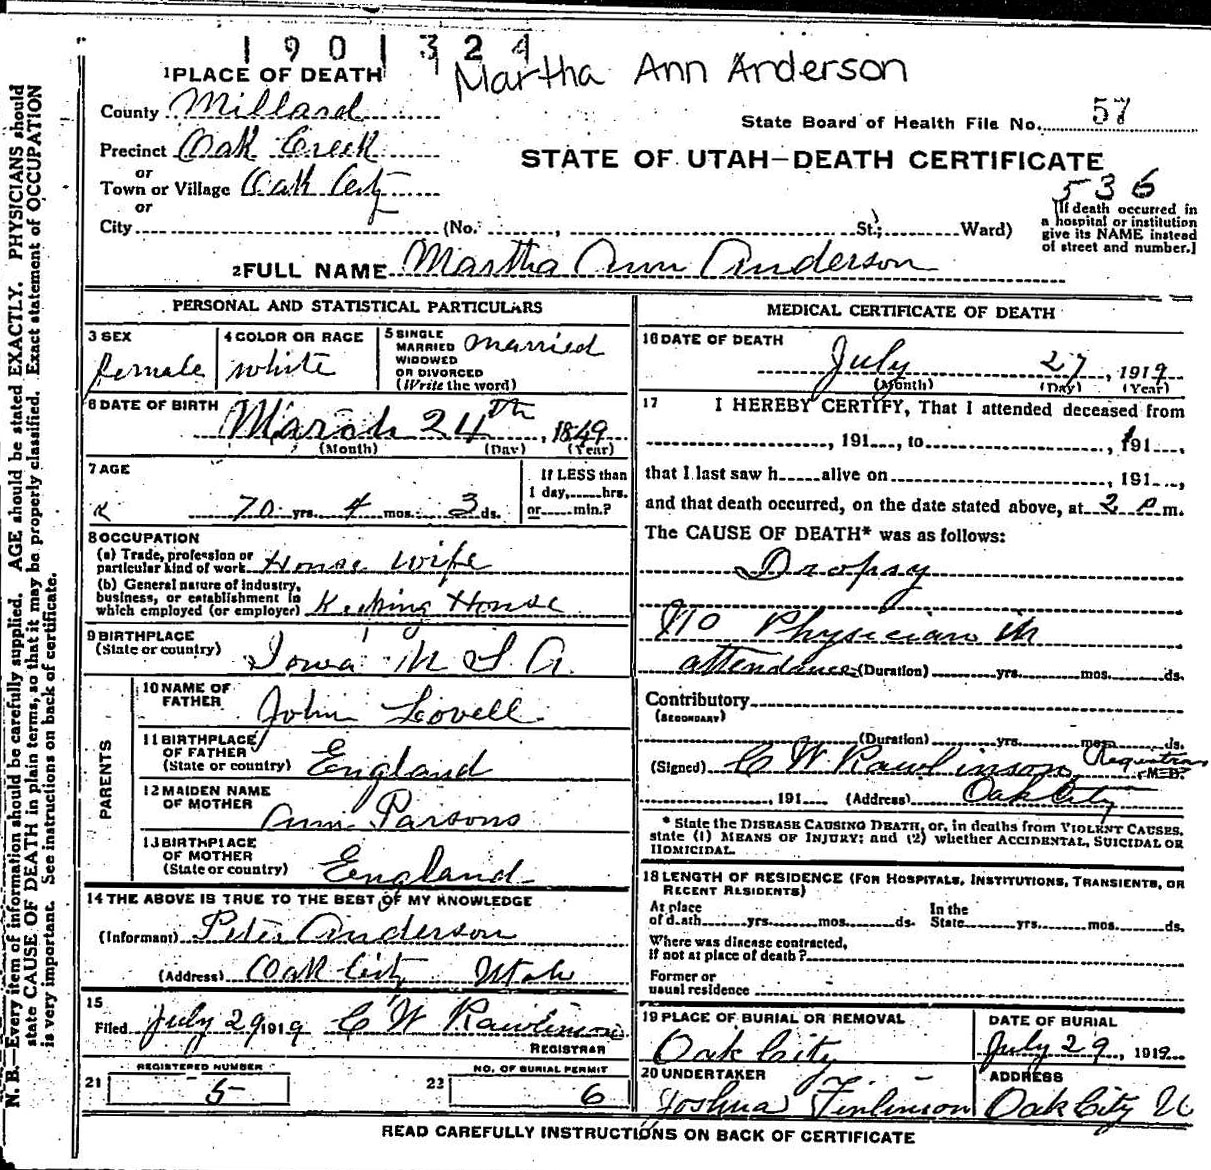 1901324
Martha Ann Anderson
1 PLACE OF DEATH
County Millard
Precinct Oak Creek
or
Town or Village Oak City
or
City (No. , St.; Ward)
State Board of Health File No. 57
STATE OF UTAH—DEATH CERTIFICATE
536
[If death occurred in
a hospital or institution
give its NAME instead
of street and number.]
2 FULL NAME Martha Ann Anderson
PERSONAL AND STATISTICAL PARTICULARS
3 SEX
female
4 COLOR OR RACE
white
5 SINGLE
MARRIED
WIDOWED
OR DIVORCED
(Write the word)
married
6 DATE OF BIRTH
March 24th, 1849
(Month) (Day) (Year)
7 AGE
70 yrs. 4 mos. 3 ds.
If LESS than
1 day, hrs.
or min.?
8 OCCUPATION
(a) Trade, profession or
particular kind of work House Wife
(b) General nature of industry,
business, or establishment in
which employed (or employer) Keeping House
9 BIRTHPLACE
(State or country) Iowa U S A.
PARENTS
10 NAME OF
FATHER John Lovell
11 BIRTHPLACE
OF FATHER
(State or country) England
12 MAIDEN NAME
OF MOTHER Ann Parsons
13 BIRTHPLACE
OF MOTHER
(State or country) England
14 THE ABOVE IS TRUE TO THE BEST OF MY KNOWLEDGE
(Informant) Peter Anderson
(Address) Oak City Utah
15
Filed July 29 1919 C W Rawlinson
REGISTRAR
REGISTERED NUMBER
21 5
NO. OF BURIAL PERMIT
23 6
MEDICAL CERTIFICATE OF DEATH
16 DATE OF DEATH
July 27, 1919
(Month) (Day) (Year)
17 I HEREBY CERTIFY, That I attended deceased from
, 191 , to , 191 ,
that I last saw h alive on , 191 ,
and that death occurred, on the date stated above, at 2 P m.
The CAUSE OF DEATH* was as follows:
Dropsy
No Physician in
attendance (Duration) yrs. mos. ds.
Contributory
(SECONDARY)
(Duration) yrs. mos. ds.
(Signed) C W Rawlinson, Registrar M.D.
, 191 (Address) Oak City
* State the DISEASE CAUSING DEATH, or, in deaths from VIOLENT CAUSES,
state (1) MEANS OF INJURY; and (2) whether ACCIDENTAL, SUICIDAL OR
HOMICIDAL.
18 LENGTH OF RESIDENCE (FOR HOSPITALS, INSTITUTIONS, TRANSIENTS, OR
RECENT RESIDENTS)
At place
of death yrs. mos. ds.
In the
State yrs. mos. ds.
Where was disease contracted,
if not at place of death?
Former or
usual residence
19 PLACE OF BURIAL OR REMOVAL
Oak City
DATE OF BURIAL
July 29, 1919
20 UNDERTAKER
Joshua Finlinson
ADDRESS
Oak City U
READ CAREFULLY INSTRUCTIONS ON BACK OF CERTIFICATE
N. B.—Every item of information should be carefully supplied. AGE should be stated EXACTLY. PHYSICIANS should
state CAUSE OF DEATH in plain terms, so that it may be properly classified. Exact statement of OCCUPATION
is very important. See instructions on back of certificate.